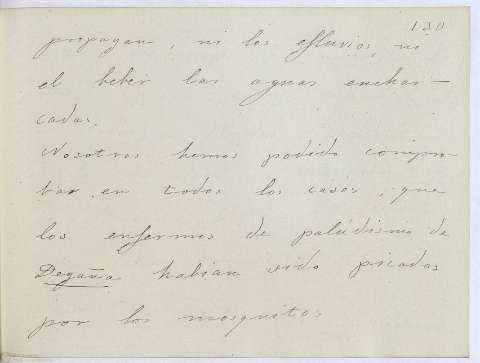 130
propagan, ni los efluvios, ni
el beber las aguas enchar-
cadas.
Nosotros hemos podido compro-
bar en todos los casos, que
los enfermos de palúdismo de
Degaña habian sido picados
por los mosquitos